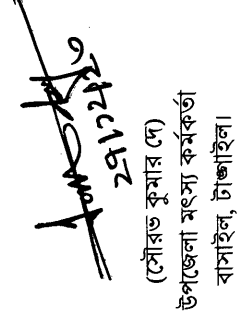 (সৌরভ কুমার দে)
উপজেলা মৎস্য কর্মকর্তা
বাসাইল, টাঙ্গাইল।